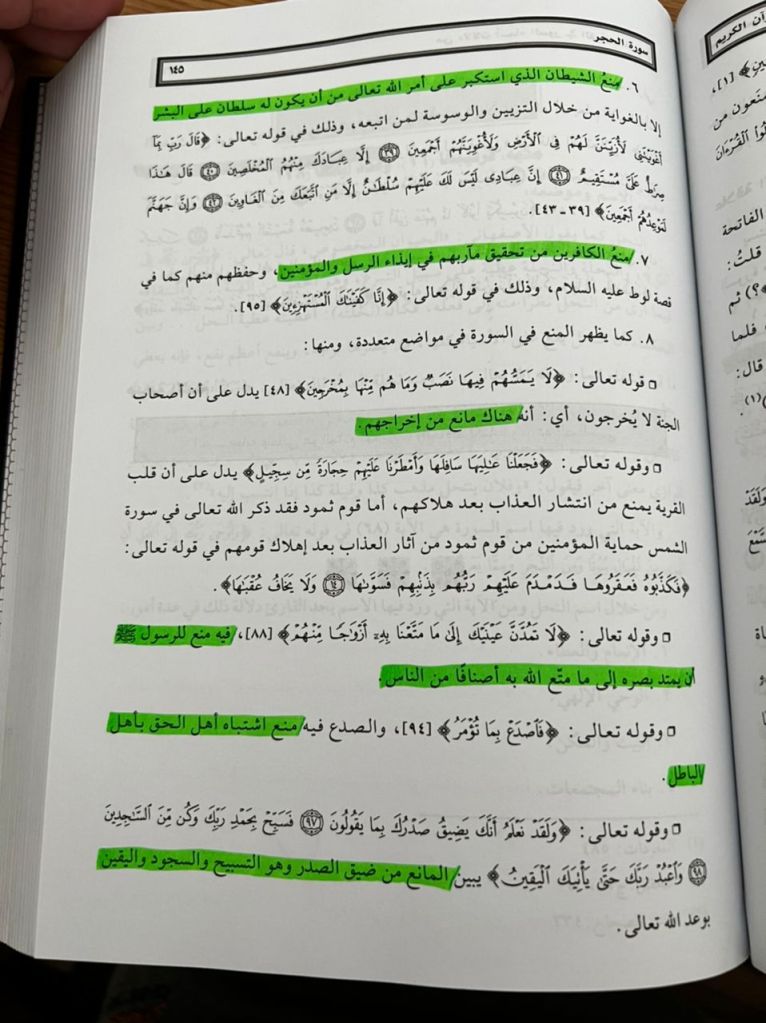 سورة الحجر
١٤٥
٦. منعُ الشيطان الذي استكبر على أمر الله تعالى من أن يكون له سلطان على البشر
إلا بالغواية من خلال التزيين والوسوسة لمن اتبعه، وذلك في قوله تعالى: ﴿قَالَ رَبِّ بِمَآ
أَغْوَيْتَنِى لَأُزَيِّنَنَّ لَهُمْ فِى ٱلْأَرْضِ وَلَأُغْوِيَنَّهُمْ أَجْمَعِينَ ٣٩ إِلَّا عِبَادَكَ مِنْهُمُ ٱلْمُخْلَصِينَ ٤٠ قَالَ هَٰذَا
صِرَٰطٌ عَلَىَّ مُسْتَقِيمٌ ٤١ إِنَّ عِبَادِى لَيْسَ لَكَ عَلَيْهِمْ سُلْطَٰنٌ إِلَّا مَنِ ٱتَّبَعَكَ مِنَ ٱلْغَاوِينَ ٤٢ وَإِنَّ جَهَنَّمَ
لَمَوْعِدُهُمْ أَجْمَعِينَ﴾ [٣٩-٤٣].
٧. منعُ الكافرين من تحقيق مآربهم في إيذاء الرسل والمؤمنين، وحفظهم منهم كما في
قصة لوط عليه السلام، وذلك في قوله تعالى: ﴿إِنَّا كَفَيْنَٰكَ ٱلْمُسْتَهْزِءِينَ﴾ [٩٥].
٨. كما يظهر المنع في السورة في مواضع متعددة، ومنها:
□ قوله تعالى: ﴿لَا يَمَسُّهُمْ فِيهَا نَصَبٌ وَمَا هُم مِّنْهَا بِمُخْرَجِينَ﴾ [٤٨] يدل على أن أصحاب
الجنة لا يُخرجون، أي: أنه هناك مانع من إخراجهم.
□ وقوله تعالى: ﴿فَجَعَلْنَا عَٰلِيَهَا سَافِلَهَا وَأَمْطَرْنَا عَلَيْهِمْ حِجَارَةً مِّن سِجِّيلٍ﴾ يدل على أن قلب
القرية يمنع من انتشار العذاب بعد هلاكهم، أما قوم ثمود فقد ذكر الله تعالى في سورة
الشمس حماية المؤمنين من قوم ثمود من آثار العذاب بعد إهلاك قومهم في قوله تعالى:
﴿فَكَذَّبُوهُ فَعَقَرُوهَا فَدَمْدَمَ عَلَيْهِمْ رَبُّهُم بِذَنۢبِهِمْ فَسَوَّىٰهَا ١٤ وَلَا يَخَافُ عُقْبَٰهَا﴾.
□ وقوله تعالى: ﴿لَا تَمُدَّنَّ عَيْنَيْكَ إِلَىٰ مَا مَتَّعْنَا بِهِۦٓ أَزْوَٰجًا مِّنْهُمْ﴾ [٨٨]، فيه منع للرسول ﷺ
أن يمتد بصره إلى ما متّع الله به أصنافًا من الناس.
□ وقوله تعالى: ﴿فَٱصْدَعْ بِمَا تُؤْمَرُ﴾ [٩٤]، والصدع فيه منع اشتباه أهل الحق بأهل
الباطل.
□ وقوله تعالى: ﴿وَلَقَدْ نَعْلَمُ أَنَّكَ يَضِيقُ صَدْرُكَ بِمَا يَقُولُونَ ٩٧ فَسَبِّحْ بِحَمْدِ رَبِّكَ وَكُن مِّنَ ٱلسَّٰجِدِينَ
٩٨ وَٱعْبُدْ رَبَّكَ حَتَّىٰ يَأْتِيَكَ ٱلْيَقِينُ﴾ يبين المانع من ضيق الصدر وهو التسبيح والسجود واليقين
بوعد الله تعالى.